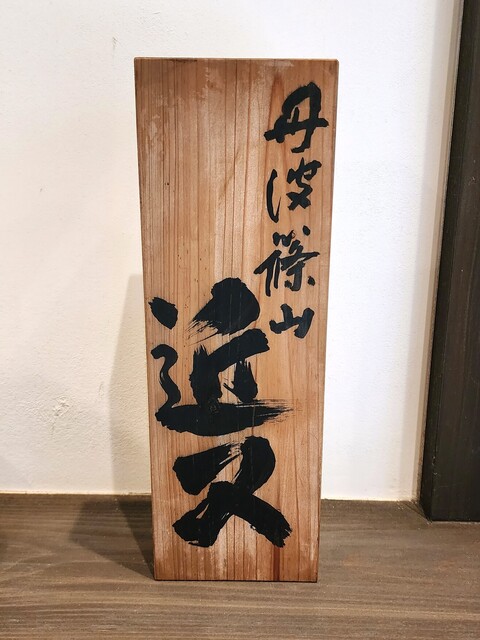 丹波篠山
近又